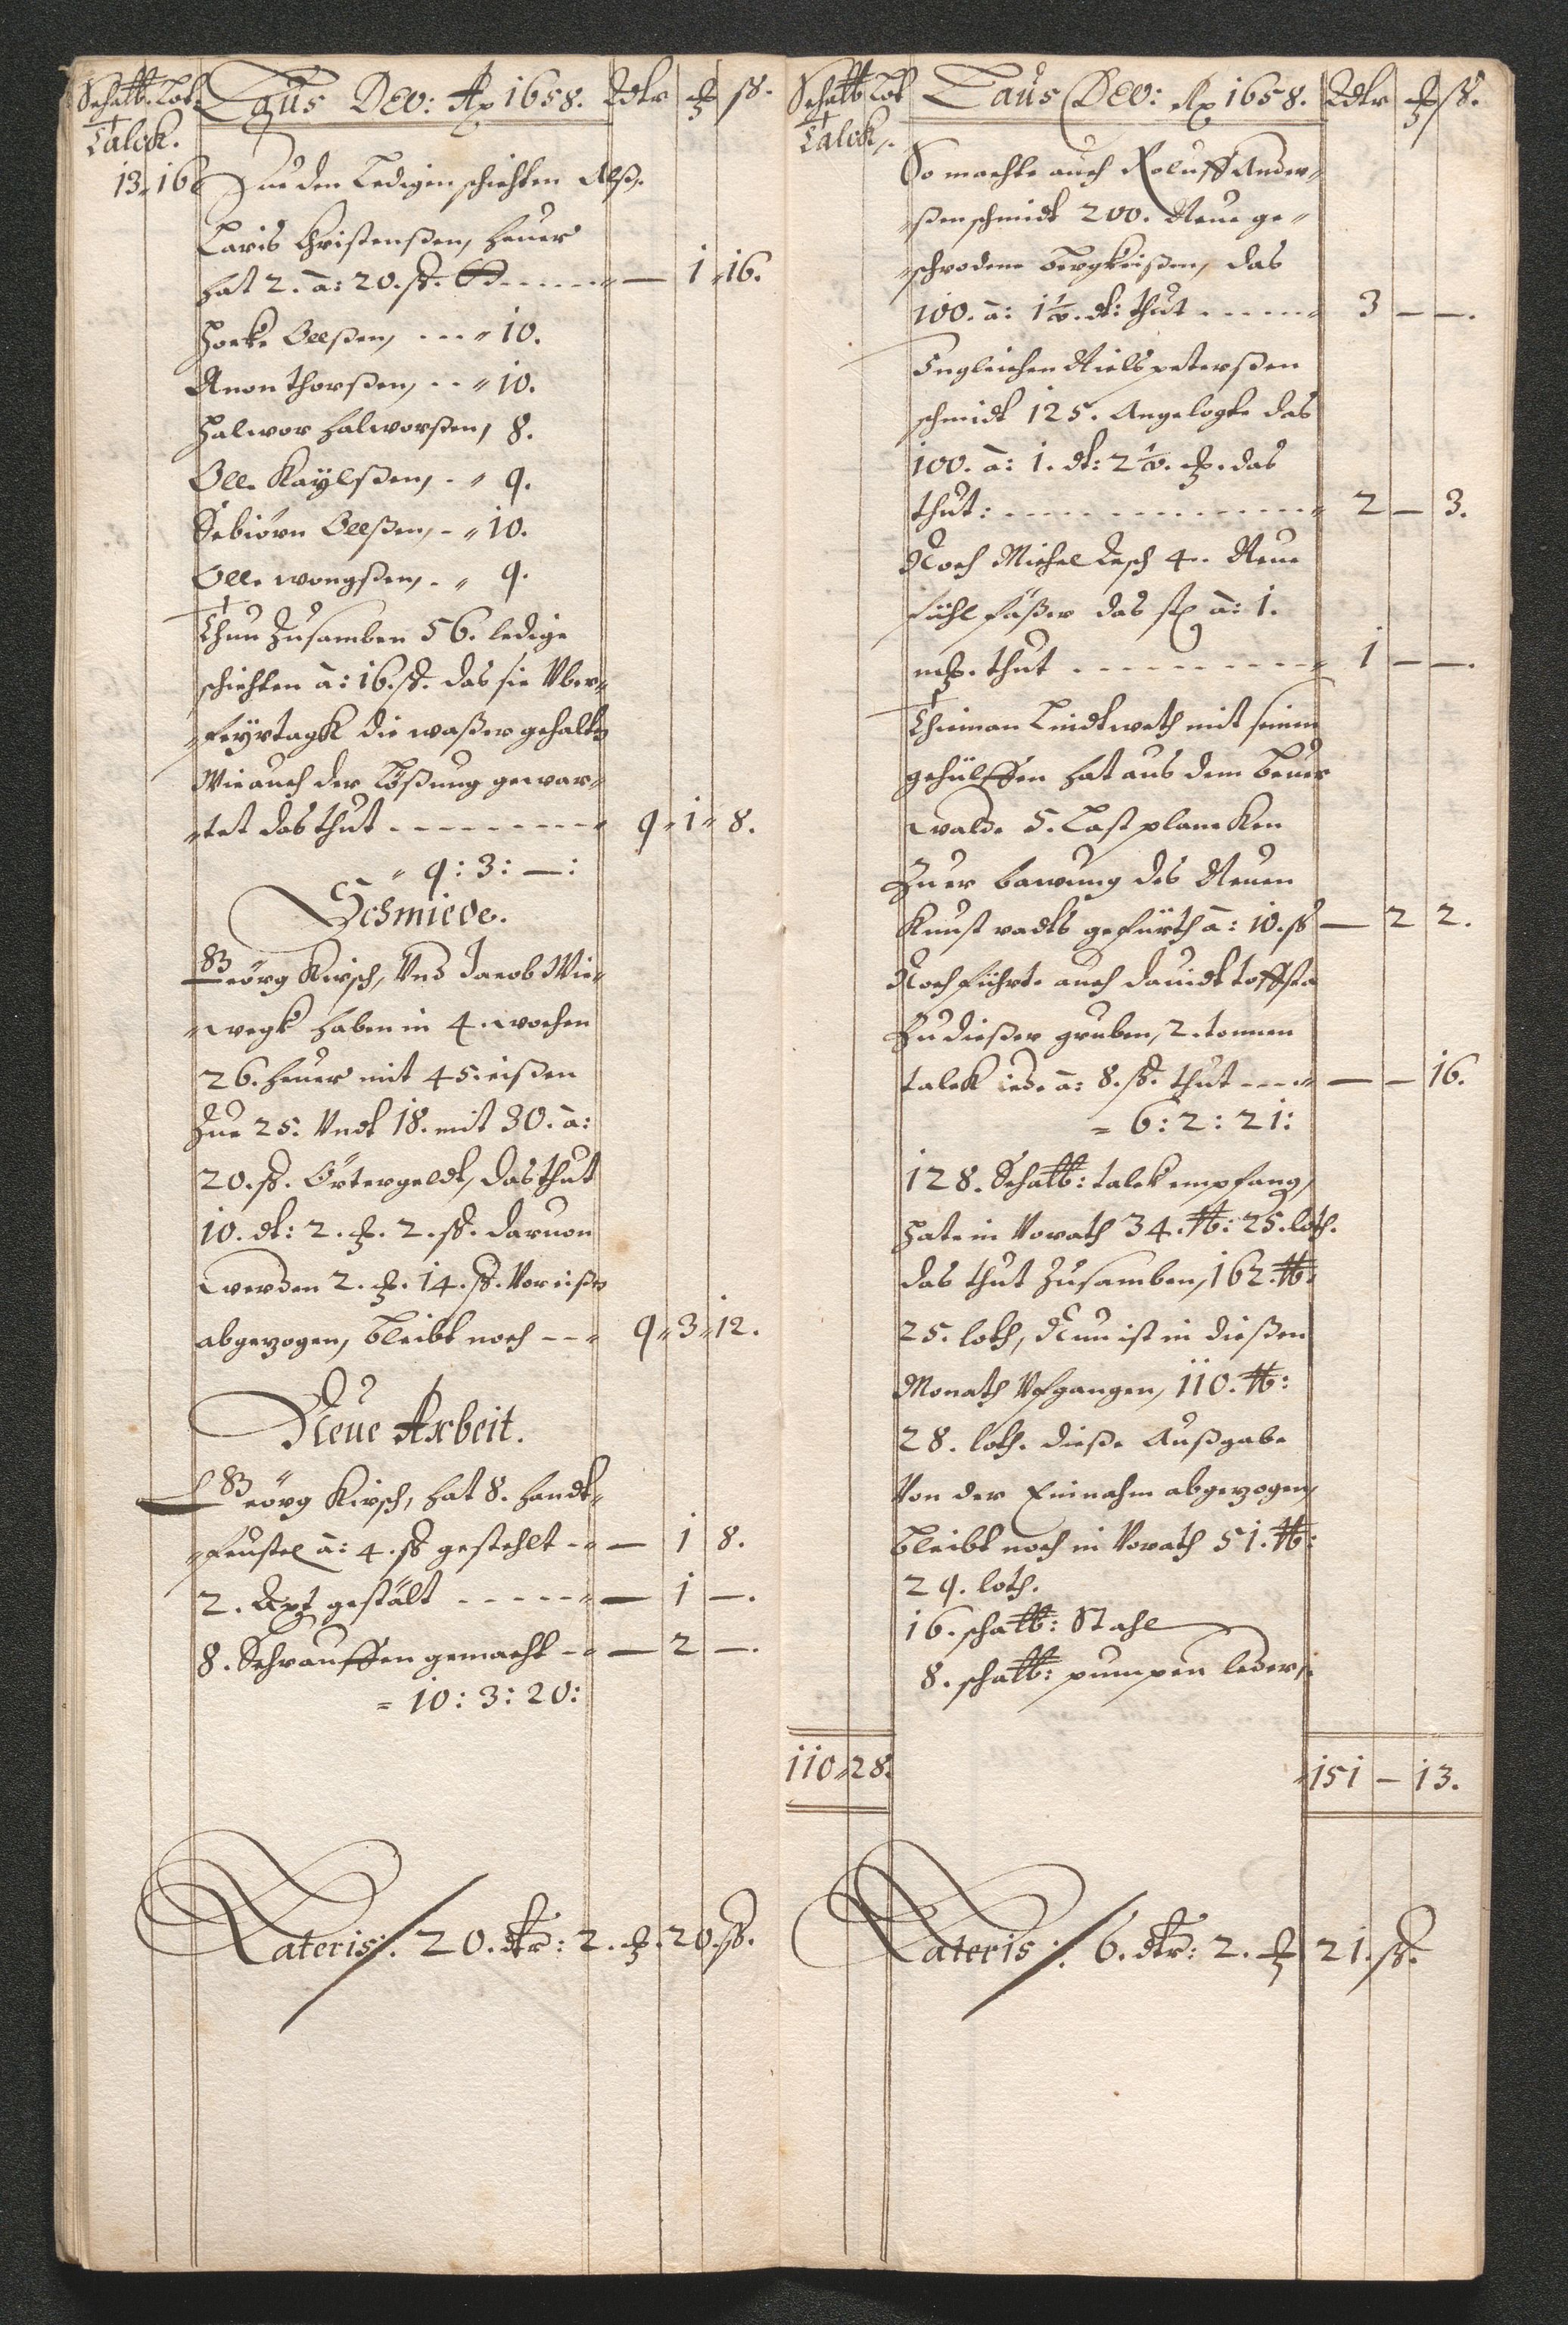 Schalb: Lot
Talck.
Laus Deo: Ao 1658. Rdlr ℳ ß.
13 16 An den Ledigen schichten Alß.
Laris Christenßen, heuer
hat 2. à: 20. ß. — 1 16.
Horke Oelßen, 10.
Anon Thorßen, 10.
Halwor Halworßen, 8.
Olle Kaylßen, 9.
Sebiörn Oelßen, 10.
Olle wongßen, 9.
Thun Zusamben 56. ledige
schichten à: 16. ß. das sie Vber
feyrtagk die waßer gehalten
Wie auch der Lößung gewar-
tet das thut 9 1 8.
9: 3: —:
Schmiede.
Geörg Kirsch, Vnd Jacob Wie-
wegk haben in 4. wochen
26. heuer mit 45. eißen
Zue 25. Vndt 18. mit 30. à:
20. ß. Örtergeldt, das thut
10. dt: 2. ℳ. 2. ß. daruon
werden 2. ℳ. 14. ß. Vor eißen
abgezogen, bleibt noch 9 3 12.
Neue Arbeit.
Geörg Kirsch, hat 8. handt-
feustel à: 4. ß gestehlt — 1 8.
2. Axt gestält — 1 —.
8. Schrauffen gemacht — 2 —.
= 10: 3: 20:
Lateris:/. 20. dlr: 2. ℳ. 20. ß.
Schalb: Lot
Talck.
Laus Deo: Ao 1658. Rdlr ℳ ß.
So machte auch Roluff Ander-
ßen schmidt 200. Neue ge-
schrodene bergkeißen, das
100. à: 1½. dt: thut 3 — —.
Ingleichen Niels peterßen
schmidt 125. Angelogte das
100. à: 1. dt: 2½. ℳ. das
thut: 2 — 3.
Noch Michel Lesch 4. Neue
fühl fäßer das stk à: 1.
mℳ. thut 1 — —.
Thieman Lindtweth mit seinem
gehülffen hat aus dem beuer
walde 5. Last plancken
Zuer bawung des Neuen
Kunst radts gefürth à: 10. ß — 2 2.
Noch führte auch dauidt toffsta
Zu dießer gruben, 2. tonnen
talck iede à: 8. ß. thut — — 16.
= 6: 2: 21:
128. Schalb: talck empfang,
hate in Vorath 34. lb: 25. loth.
das thut Zusamben, 162. lb:
25. loth, Nun ist in dießen
Monath Vfgangen, 110. lb:
28. loth. dieße Außgabe
Von der Einnahm abgezogen,
bleibt noch in Vorath 51. lb:
29. loth.
16. schalb: Stahl
8. schalb: pumpen leder.
110 28. 151 — 13.
Lateris:/. 6. dlr: 2. ℳ 21. ß.